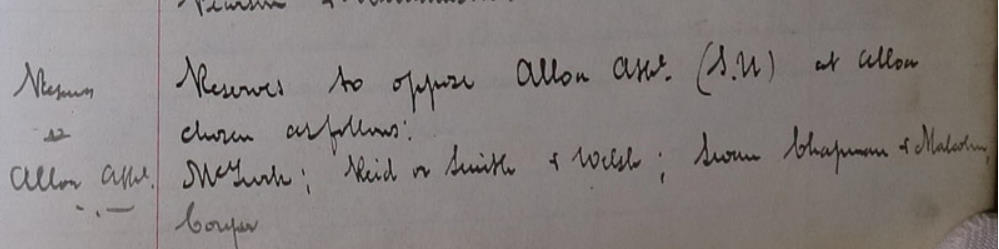 Reserves
vs
Alloa Ath.
Reserves to oppose Alloa Ath. (S.U) at Alloa
chosen as follows:
McGurk; Reid or Smith & Welsh; Swan Chapman & Malcolm,
Couper